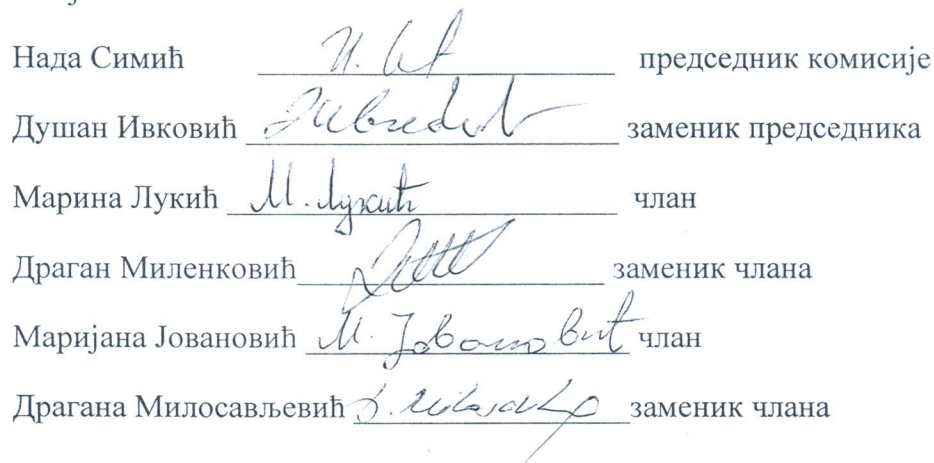 Нада Симић председник комисије
Душан Ивковић заменик председника
Марина Лукић М. Лукић члан
Драган Миленковић заменик члана
Маријана Јовановић М. Јовановић члан
Драгана Милосављевић заменик члана